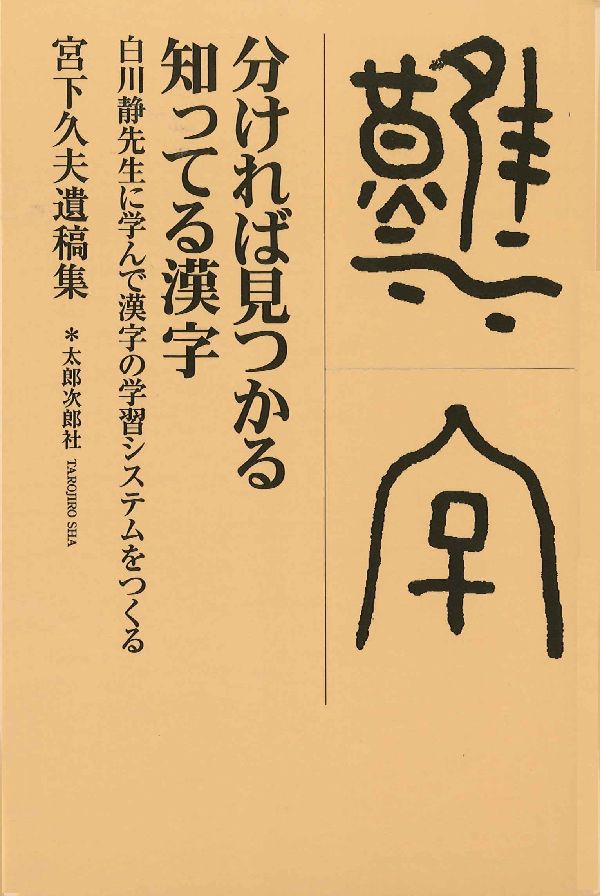 漢字
分ければ見つかる
知ってる漢字
白川静先生に学んで漢字の学習システムをつくる
宮下久夫遺稿集
＊太郎次郎社 TAROJIRO SHA